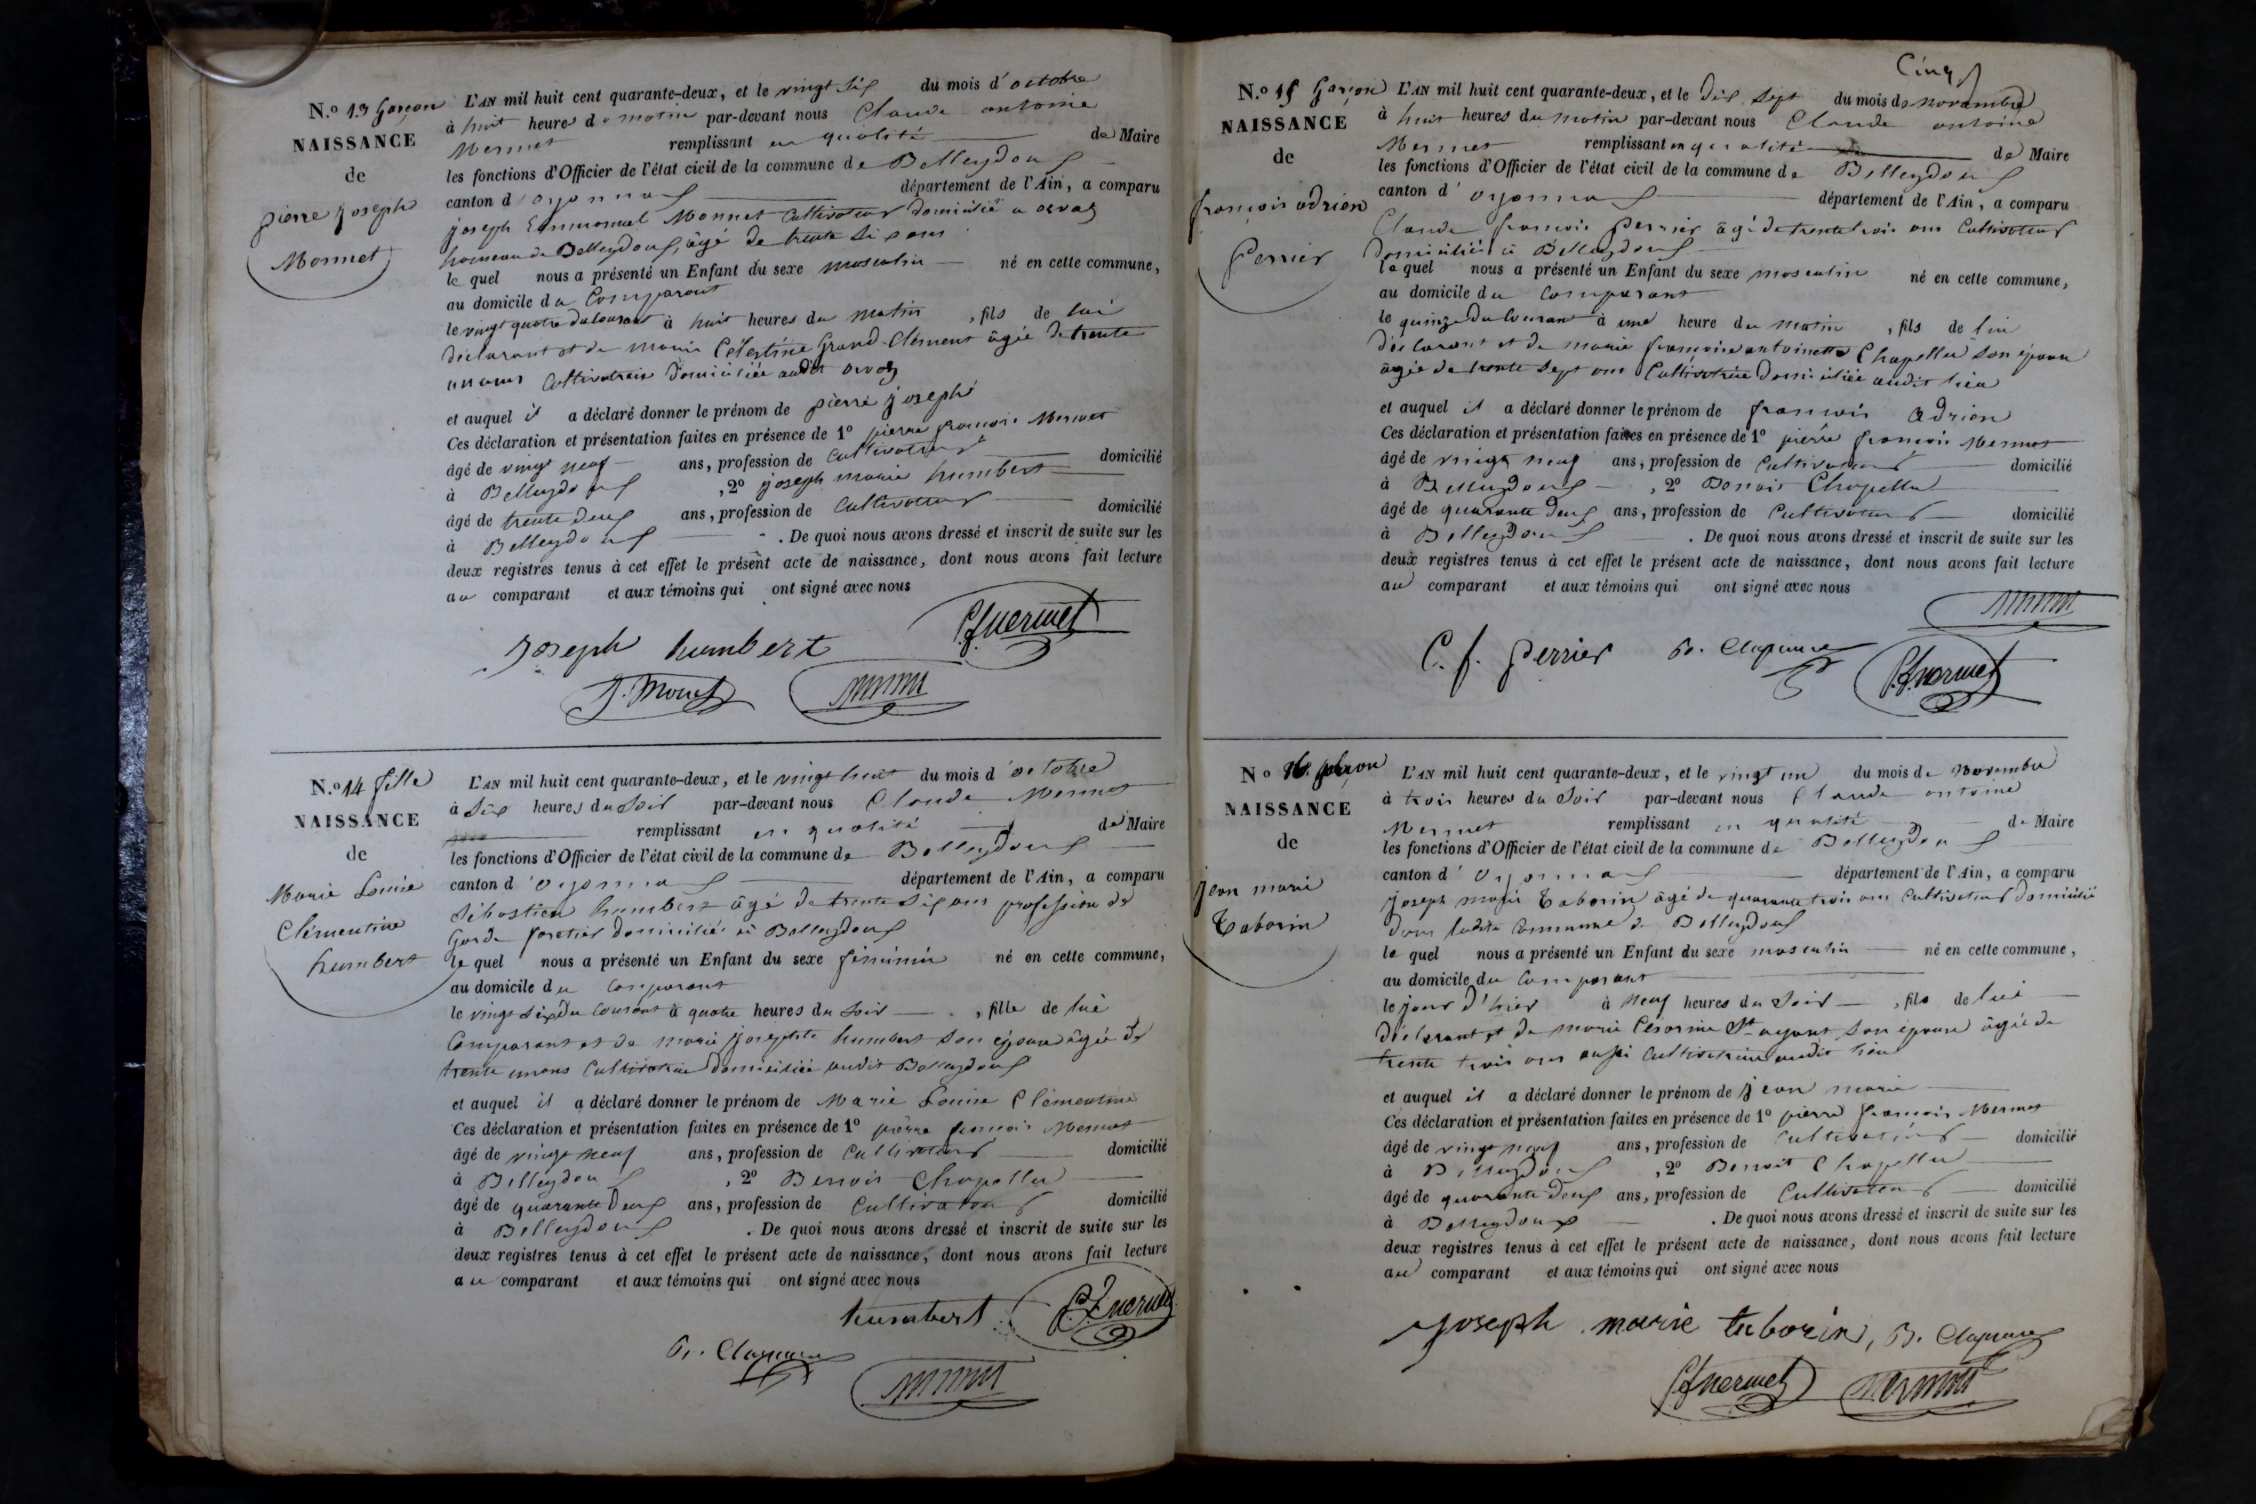 N.º 13 garçon
NAISSANCE
de
pierre joseph
Monnet
L'AN mil huit cent quarante-deux, et le vingt six du mois d'octobre
à huit heures du matin par-devant nous Claude antoine
Mermet remplissant en qualité de Maire
les fonctions d'Officier de l'état civil de la commune de Belleydoux
canton d'oyonnax département de l'Ain, a comparu
joseph Emmanuel Monnet Cultivateur domicilié a orvaz
hameau de Belleydoux, âgé de trente six ans
le quel nous a présenté un Enfant du sexe masculin né en cette commune,
au domicile du Comparant
le vingt quatre du courant à huit heures du matin, fils de lui
déclarant et de marie Célestine Grand-Clément âgée de trente
un ans Cultivatrice domiciliée audit orvaz
et auquel il a déclaré donner le prénom de pierre joseph
Ces déclaration et présentation faites en présence de 1º pierre françois Mermet
âgé de vingt neuf ans, profession de Cultivateur domicilié
à Belleydoux, 2º joseph marie humbert
âgé de trente deux ans, profession de Cultivateur domicilié
à Belleydoux. De quoi nous avons dressé et inscrit de suite sur les
deux registres tenus à cet effet le présent acte de naissance, dont nous avons fait lecture
au comparant et aux témoins qui ont signé avec nous
joseph humbert P.f. mermet
J. Monet
N.º 14 fille
NAISSANCE
de
Marie Louise
Clémentine
humbert
L'AN mil huit cent quarante-deux, et le vingt huit du mois d'octobre
à six heures du Soir par-devant nous Claude Mermet
remplissant en qualité de Maire
les fonctions d'Officier de l'état civil de la commune de Belleydoux
canton d'oyonnax département de l'Ain, a comparu
Sébastien humbert âgé de trente six ans profession de
Garde foretier domicilié à Belleydoux
le quel nous a présenté un Enfant du sexe féminin né en cette commune,
au domicile du Comparant
le vingt six du courant à quatre heures du Soir, fille de lui
Comparant et de marie josephte humbert son épouse âgée de
trente un ans Cultivatrice domiciliée audit Belleydoux
et auquel il a déclaré donner le prénom de Marie Louise Clémentine
Ces déclaration et présentation faites en présence de 1º pierre françois Mermet
âgé de vingt neuf ans, profession de Cultivateur domicilié
à Belleydoux, 2º Benoit Chapellu
âgé de quarante deux ans, profession de Cultivateur domicilié
à Belleydoux. De quoi nous avons dressé et inscrit de suite sur les
deux registres tenus à cet effet le présent acte de naissance, dont nous avons fait lecture
au comparant et aux témoins qui ont signé avec nous
humbert P.f. mermet
Cinq
N.º 15 garçon
NAISSANCE
de
françois adrien
Perrier
L'AN mil huit cent quarante-deux, et le dix sept du mois de novembre
à huit heures du matin par-devant nous Claude antoine
Mermet remplissant en qualité de Maire
les fonctions d'Officier de l'état civil de la commune de Belleydoux
canton d'oyonnax département de l'Ain, a comparu
Claude françois Perrier âgé de trente trois ans Cultivateur
domicilié à Belleydoux
le quel nous a présenté un Enfant du sexe masculin né en cette commune,
au domicile du Comparant
le quinze du Courant à une heure du matin, fils de lui
déclarant et de marie françoise antoinette Chapellu son épouse
âgée de trente sept ans Cultivatrice domiciliée audit lieu
et auquel il a déclaré donner le prénom de françois adrien
Ces déclaration et présentation faites en présence de 1º pierre françois Mermet
âgé de vingt neuf ans, profession de Cultivateur domicilié
à Belleydoux, 2º Benoit Chapellu
âgé de quarante deux ans, profession de Cultivateur domicilié
à Belleydoux. De quoi nous avons dressé et inscrit de suite sur les
deux registres tenus à cet effet le présent acte de naissance, dont nous avons fait lecture
au comparant et aux témoins qui ont signé avec nous
C. f. Perrier
P.f. mermet
Nº 16. garçon
NAISSANCE
de
jean marie
Taborin
L'AN mil huit cent quarante-deux, et le vingt un du mois de Novembre
à trois heures du Soir par-devant nous Claude antoine
Mermet remplissant en qualité de Maire
les fonctions d'Officier de l'état civil de la commune de Belleydoux
canton d'oyonnax département de l'Ain, a comparu
joseph marie Taborin âgé de quarante trois ans Cultivateur domicilié
dans ladite Commune de Belleydoux
le quel nous a présenté un Enfant du sexe masculin né en cette commune,
au domicile du Comparant
le jour d'hier à neuf heures du Soir, fils de lui
déclarant et de marie Césarine St oyant son épouse âgée de
trente trois ans aussi Cultivatrice audit lieu
et auquel il a déclaré donner le prénom de jean marie
Ces déclaration et présentation faites en présence de 1º pierre françois Mermet
âgé de vingt neuf ans, profession de Cultivateur domicilié
à Belleydoux, 2º Benoit Chapellu
âgé de quarante deux ans, profession de Cultivateur domicilié
à Belleydoux. De quoi nous avons dressé et inscrit de suite sur les
deux registres tenus à cet effet le présent acte de naissance, dont nous avons fait lecture
au comparant et aux témoins qui ont signé avec nous
joseph marie taborin,
P.f. mermet mermet